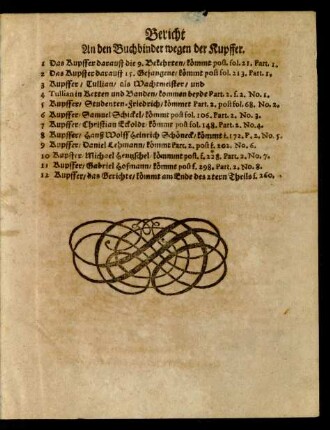 Bericht
An den Buchbinder wegen der Kupffer.
1 Das Kupffer darauff die 9. Bekehrten/ kömmt post fol. 21. Part. 1.
2 Das Kupffer darauff 15. Gefangene/ kömmt post fol. 213. Part. 1.
3 Kupffer/ Tullian/ als Wachtmeister/ und
4 Tullian in Ketten und Banden/ kommen beyde Part. 2. f. 2. No. 1.
6 Kupffer/ Studenten-Friedrich/ kömmet Part. 2. post fol. 68. No. 2.
6 Kupffer/ Samuel Schickel/ kömmt post fol. 106. Part. 2. No. 3.
7 Kupffer/ Christian Eckoldt kömmt post fol. 148. Part. 2. No. 4.
8 Kupffer/ Hanß Wolff Heinrich Schöneck/ kömmt f. 172. P. 2. No. 5.
9 Kupffer/ Daniel Lehmann/ kömmt Part. 2. post f. 202. No. 6.
10 Kupffer/ Michael Hentzschel/ kömmmt post. f. 228. Part. 2. No. 7.
11 Kupffer/ Gabriel Hofmann/ kömmt post f. 298. Part. 2. No. 8.
12 Kupffer/ das Gerichte/ kömmt am Ende des 2tern Theils f. 260.